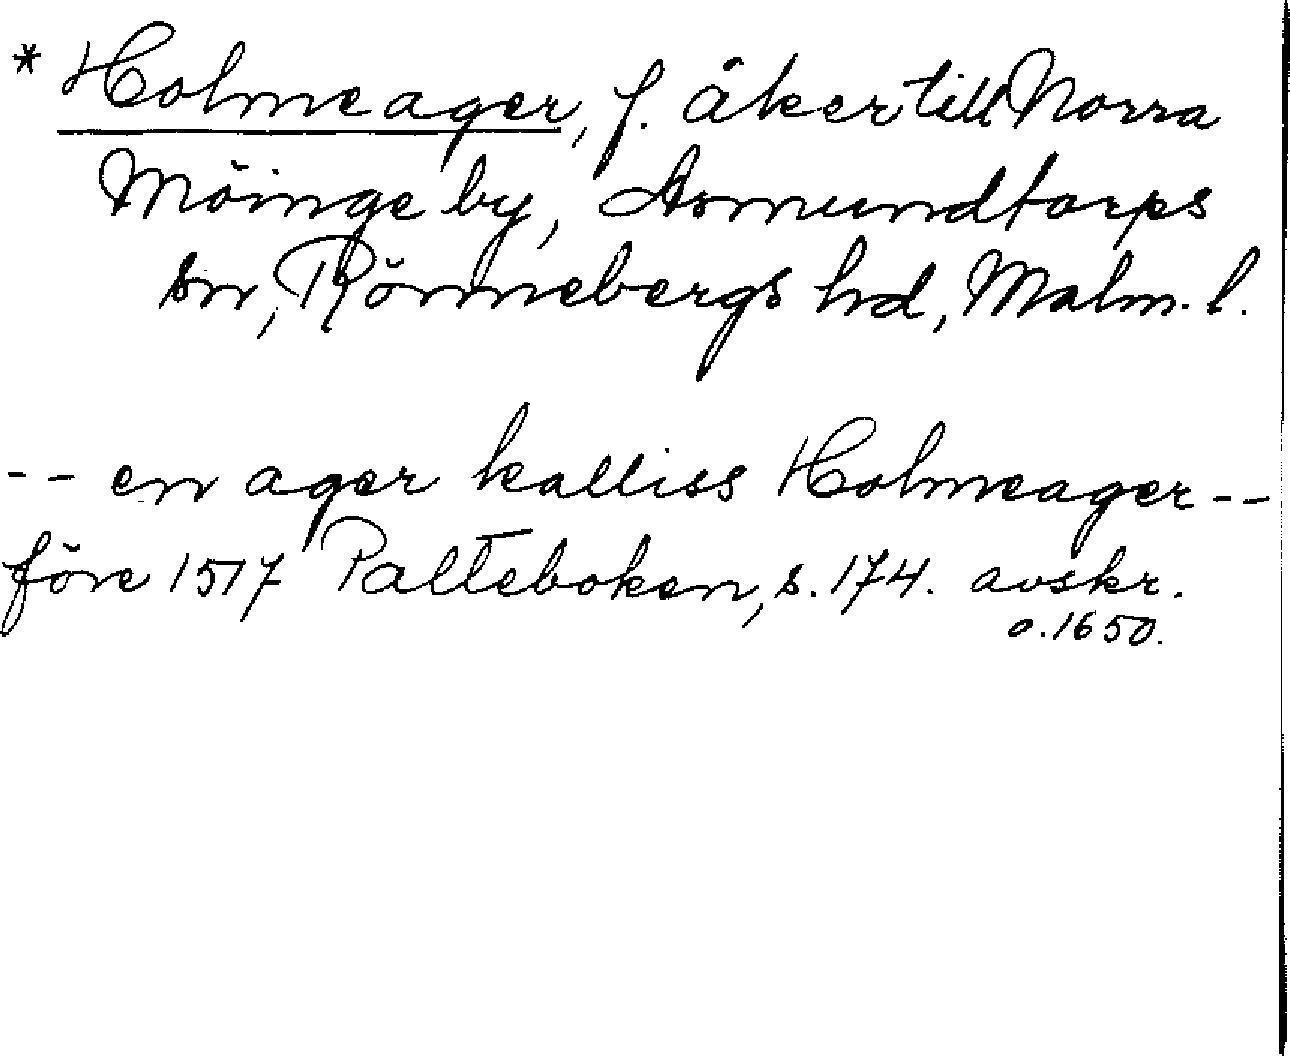 * Holmeager, f. åker till Norra
Möinge by, Asmundtorps
sn, Rönnebergs hd, Malm. l.
-- en ager kalliss Holmeager --
före 1517 Palteboken, s. 174. avskr.
o. 1650.